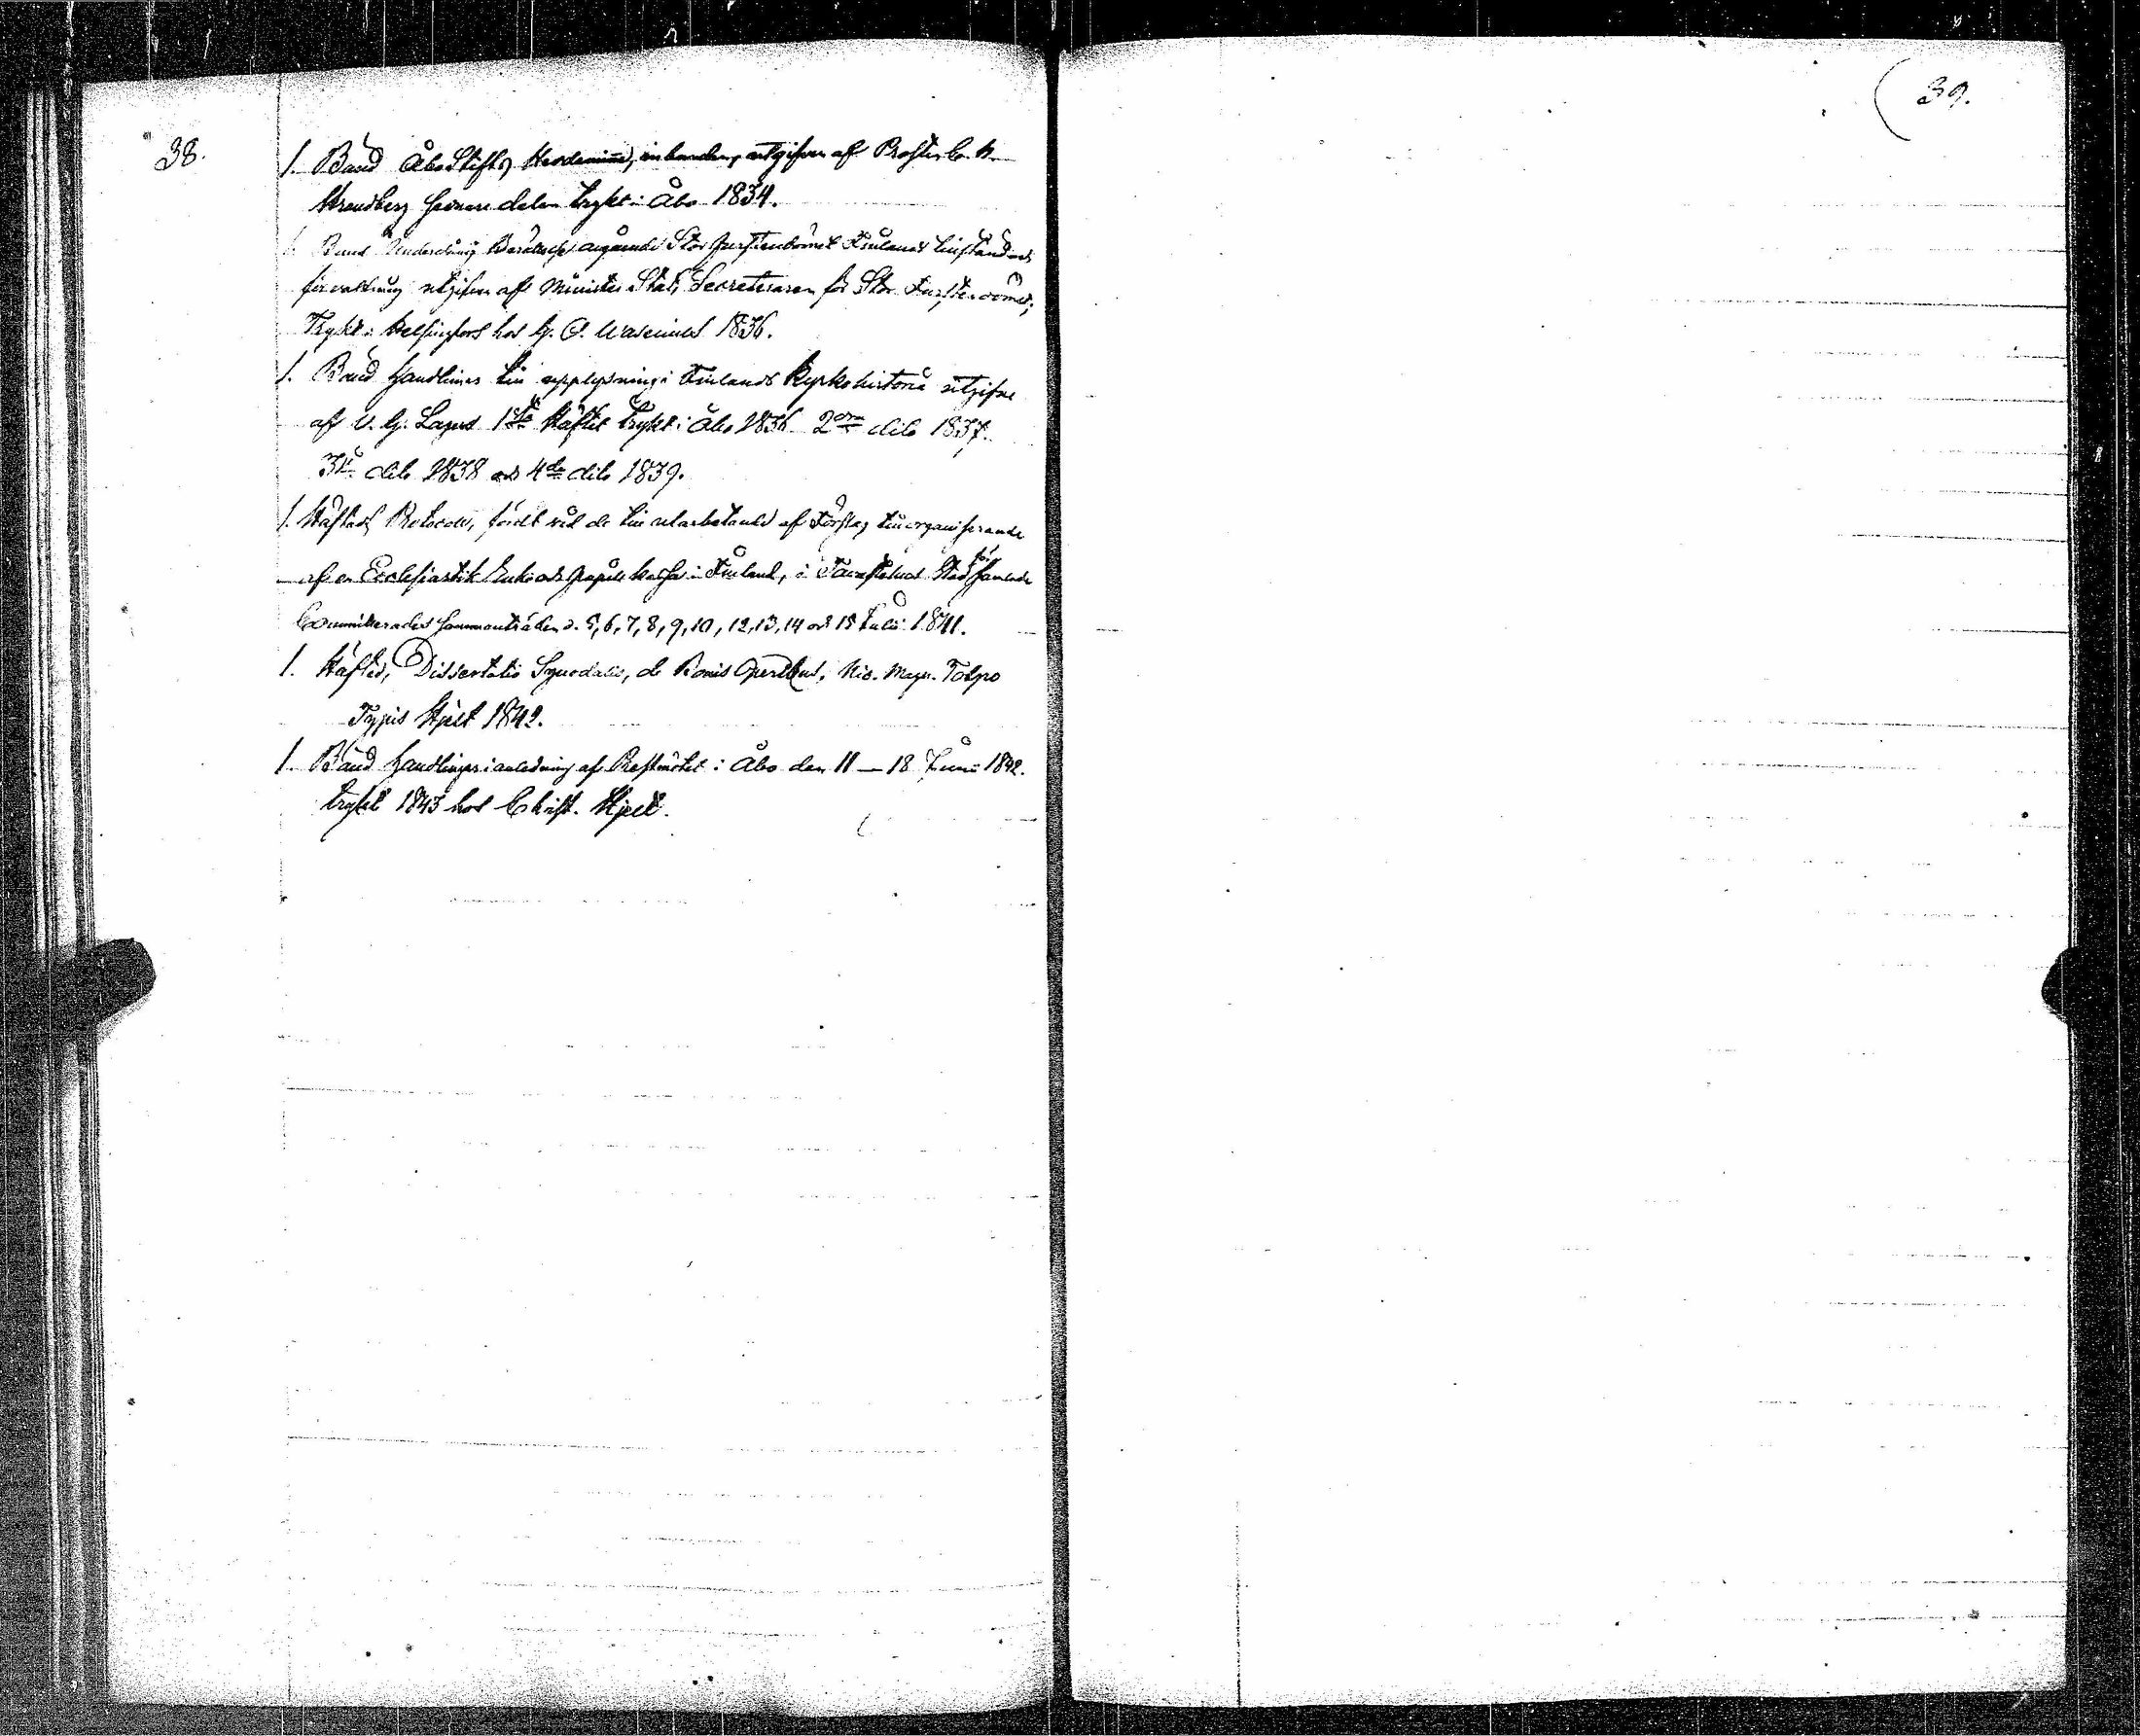 38.
1. Band Åbo Stifts Herdaminne, inbunden, utgifven af Prosten C. H.
Strandberg senare delen tryckt i Åbo 1834.
1. Band Underdånig Berättelse angående Stor Furstendömet Finlands tillstånd och
förvaltning utgifven af Minister Stats Secreteraren för Stor Furstendömet,
Tryckt i Helsingfors hos G. O. Wasenius 1836.
1. Band Handlingar till upplysning i Finlands Kyrkohistoria utgifne
af W. G. Lagus 1sta Häftet tryckt i Åbo 1836 2dra dito 1837.
3je dito 1838 och 4de dito 1839.
1. Häftadt Protocoll, fördt vid de till utarbetande af Förslag till organiserande
af en Ecclesiastik Enke och Pupill Kassa i Finland, i Tavastehus Stad församlade
Committerades sammanträden d. 5, 6, 7, 8, 9, 10, 12, 13, 14 och 15 Julii 1841.
1. Häftad, Dissertatio Synodalis, de Bonis Operibus, Nic. Magn. Tolpo
Typis Hjelt 1842.
1. Band Handlingar i anledning af Prestmötet i Åbo den 11 — 18 Junii 1842.
tryckt 1843 hos Christ. Hjelt.
39.